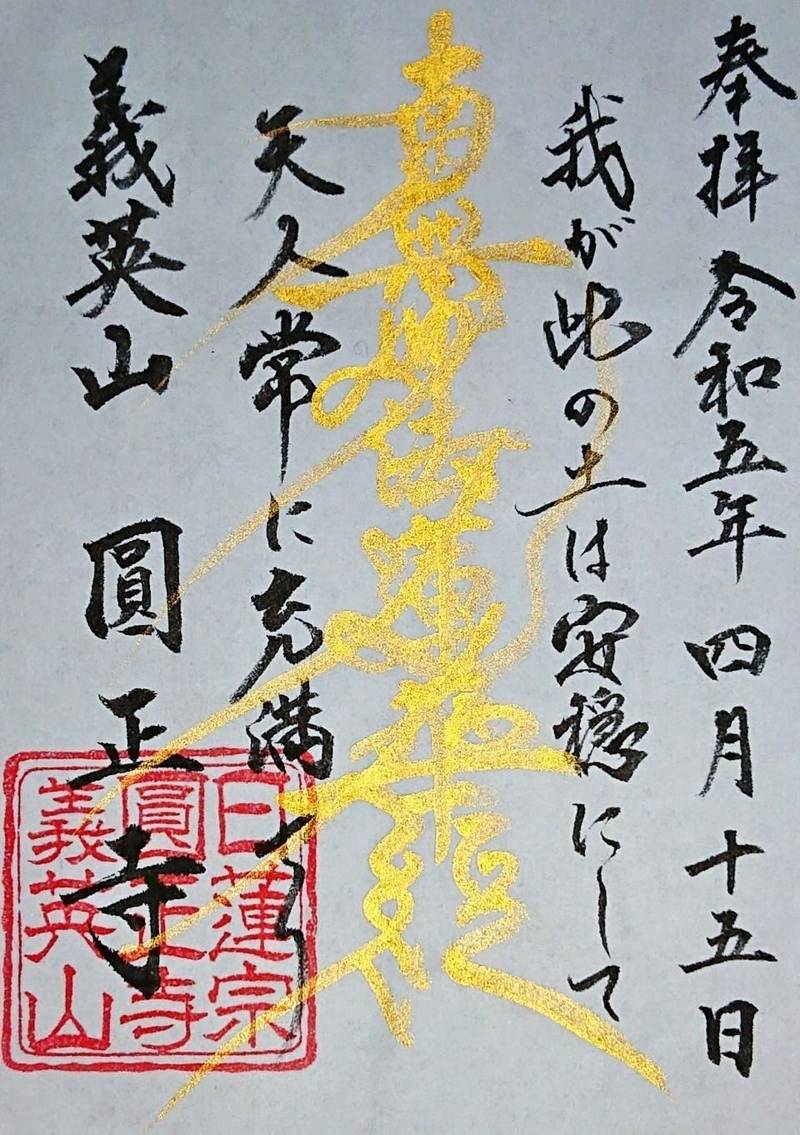 奉拝 令和五年 四月 十五日
我が此の土は安穏にして
南無妙法蓮華経
天人常に充満せり
義英山 圓正寺
日蓮宗
圓正寺
義英山